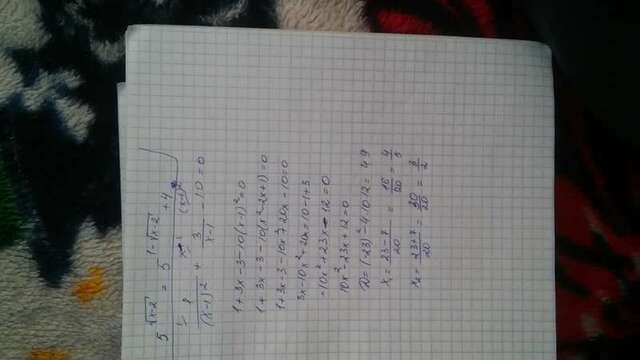 5^√(x-2) = 5^(1-√(x-2)) + 4
1/(x-1)² + 3/(x-1) - 10 = 0
1+3x-3-10(x-1)²=0
1+3x-3-10(x²-2x+1)=0
1+3x-3-10x²+20x-10=0
3x-10x²+20x=10-1+3
-10x²+23x-12=0
10x²-23x+12=0
D=(-23)²-4·10·12=49
x₁=(23-7)/20 = 16/20 = 4/5
x₂=(23+7)/20 = 30/20 = 3/2